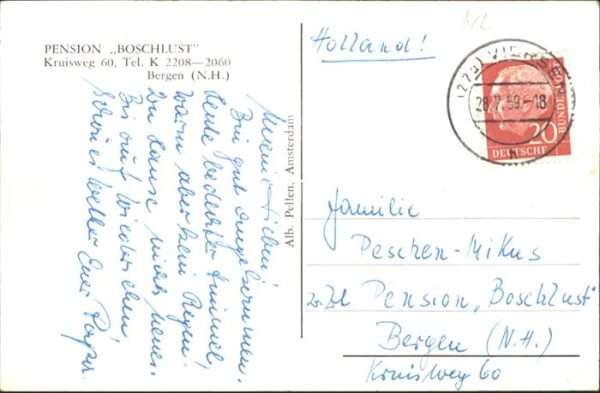 PENSION „BOSCHLUST"
Kruisweg 60, Tel. K 2208—2060
Bergen (N.H.)
Bin gut angekommen.
Heute bedeckter Himmel,
warm aber kein Regen.
Zu Hause nichts neues.
Bis auf Wiedersehen,
schönes Wetter Euer Papa
Alb. Pellen, Amsterdam
Holland!
(22a) VIERSEN
28.7.59.-18
20
DEUTSCHE
BUNDES
Familie
Peschen-Mikus
z. Zt Pension „Boschlust"
Bergen (N.H.)
Kruisweg 60